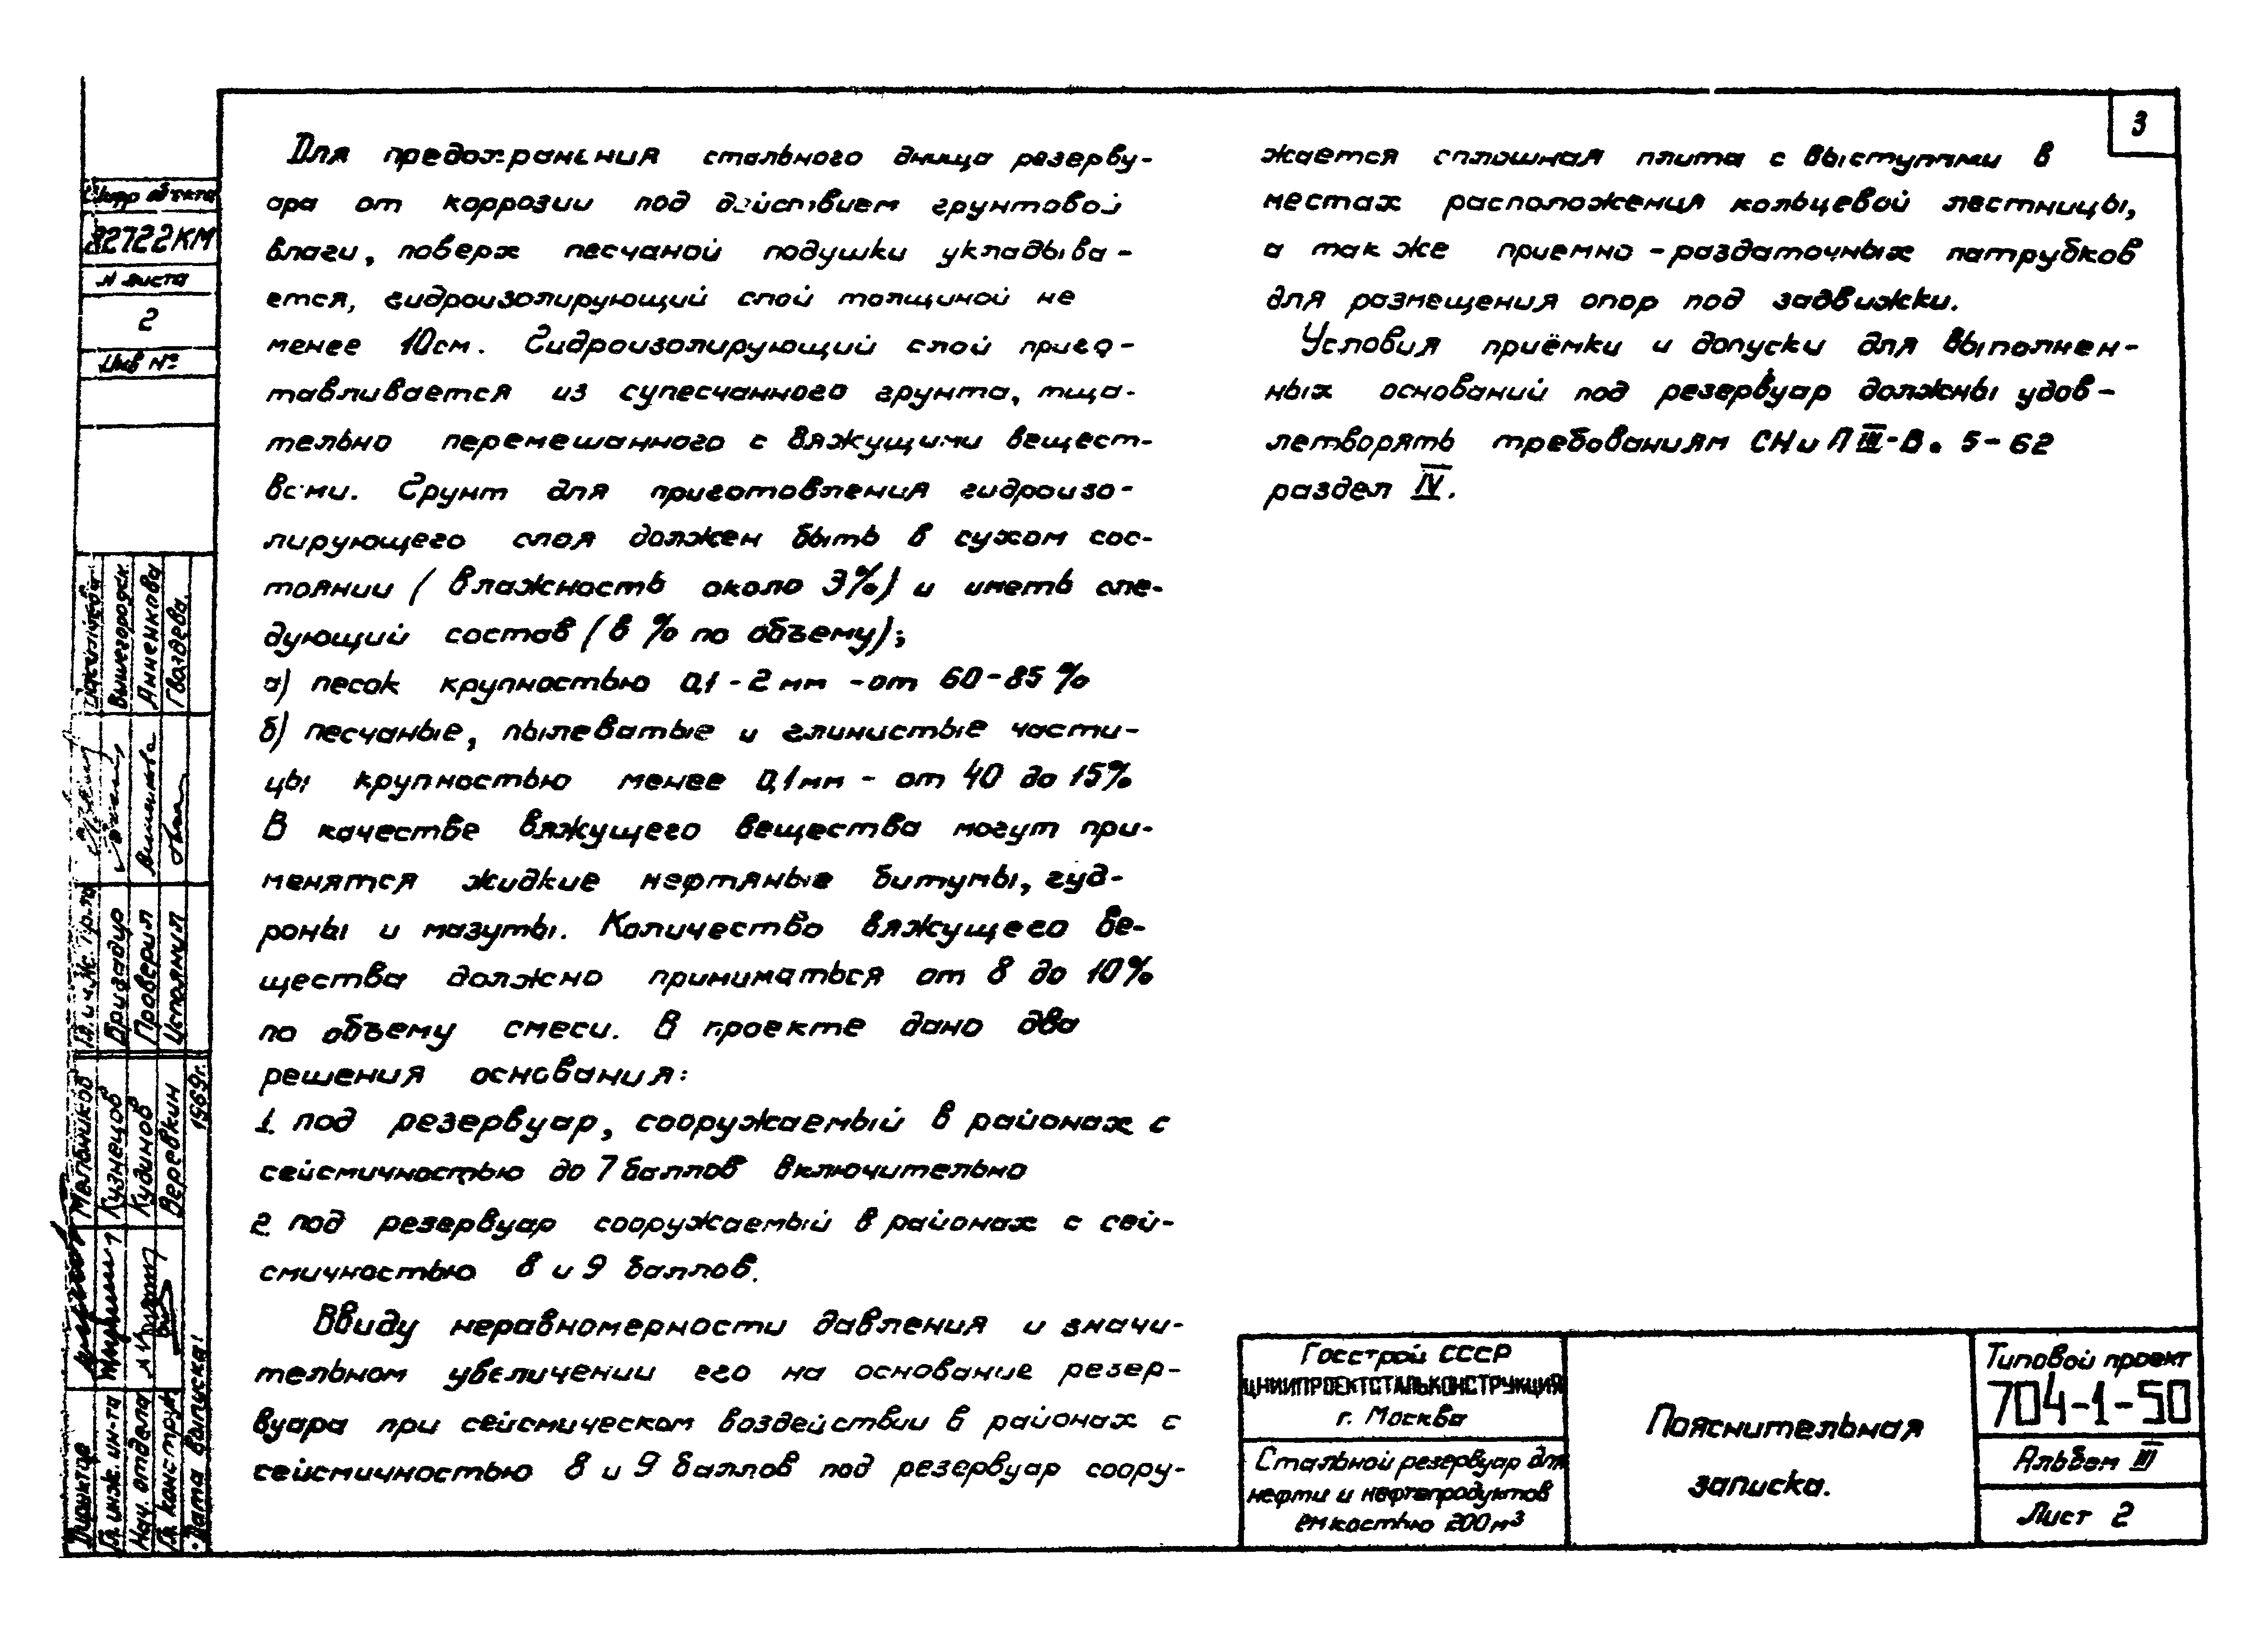 3
Для предохранения стального днища резерву-
ара от коррозии под действием грунтовой
влаги, поверх песчаной подушки укладыва-
ется, гидроизолирующий слой толщиной не
менее 10см. Гидроизолирующий слой приго-
тавливается из супесчанного грунта, тща-
тельно перемешанного с вяжущими вещест-
вами. Грунт для приготовления гидроизо-
лирующего слоя должен быть в сухом сос-
тоянии (влажность около 3%) и иметь сле-
дующий состав (в % по объему);
а) песок крупностью 0,1-2мм -от 60-85%
б) песчаные, пылеватые и глинистые части-
цы крупностью менее 0,1мм - от 40 до 15%
В качестве вяжущего вещества могут при-
менятся жидкие нефтяные битумы, гуд-
роны и мазуты. Количество вяжущего ве-
щества должно приниматься от 8 до 10%
по объему смеси. В проекте дано два
решения основания:
1. под резервуар, сооружаемый в районах с
сейсмичностью до 7 баллов включительно
2. под резервуар сооружаемый в районах с сей-
смичностью 8 и 9 баллов.
Ввиду неравномерности давления и значи-
тельном увеличении его на основание резер-
вуара при сейсмическом воздействии в районах с
сейсмичностью 8 и 9 баллов под резервуар соору-
жается сплошная плита с выступами в
местах расположения кольцевой лестницы,
а так же приемно-раздаточных патрубков
для размещения опор под задвижки.
Условия приёмки и допуски для выполнен-
ных оснований под резервуар должны удов-
летворять требованиям СНиП III-В. 5-62
раздел IV.
Шифр объекта
32722КМ
N листа
2
Инв №
Вышегородск.
Анненкова
Гвоздева
Гл. инж. пр-та
Бригадир
Проверил
Исполнил
Мельников
Кузнецов
Кудинов
Веревкин
1969г.
Директор
Гл. инж. ин-та
Нач. отдела
Гл. констр.
Дата выпуска:
Госстрой СССР
ЦНИИПРОЕКТСТАЛЬКОНСТРУКЦИЯ
г. Москва
Стальной резервуар для
нефти и нефтепродуктов
емкостью 200м³
Пояснительная
записка.
Типовой проект
704-1-50
Альбом III
Лист 2